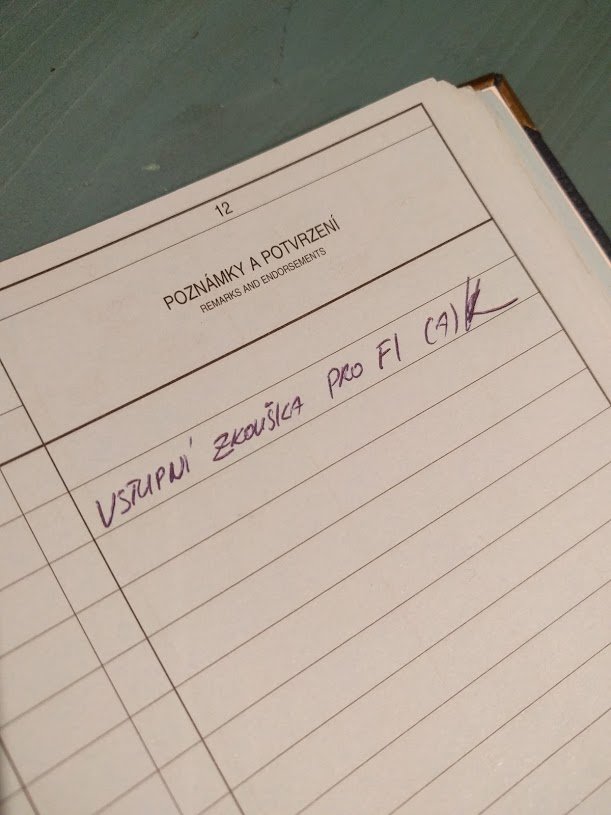 12
POZNÁMKY A POTVRZENÍ
REMARKS AND ENDORSEMENTS
VSTUPNÍ ZKOUŠKA PRO FI (A)